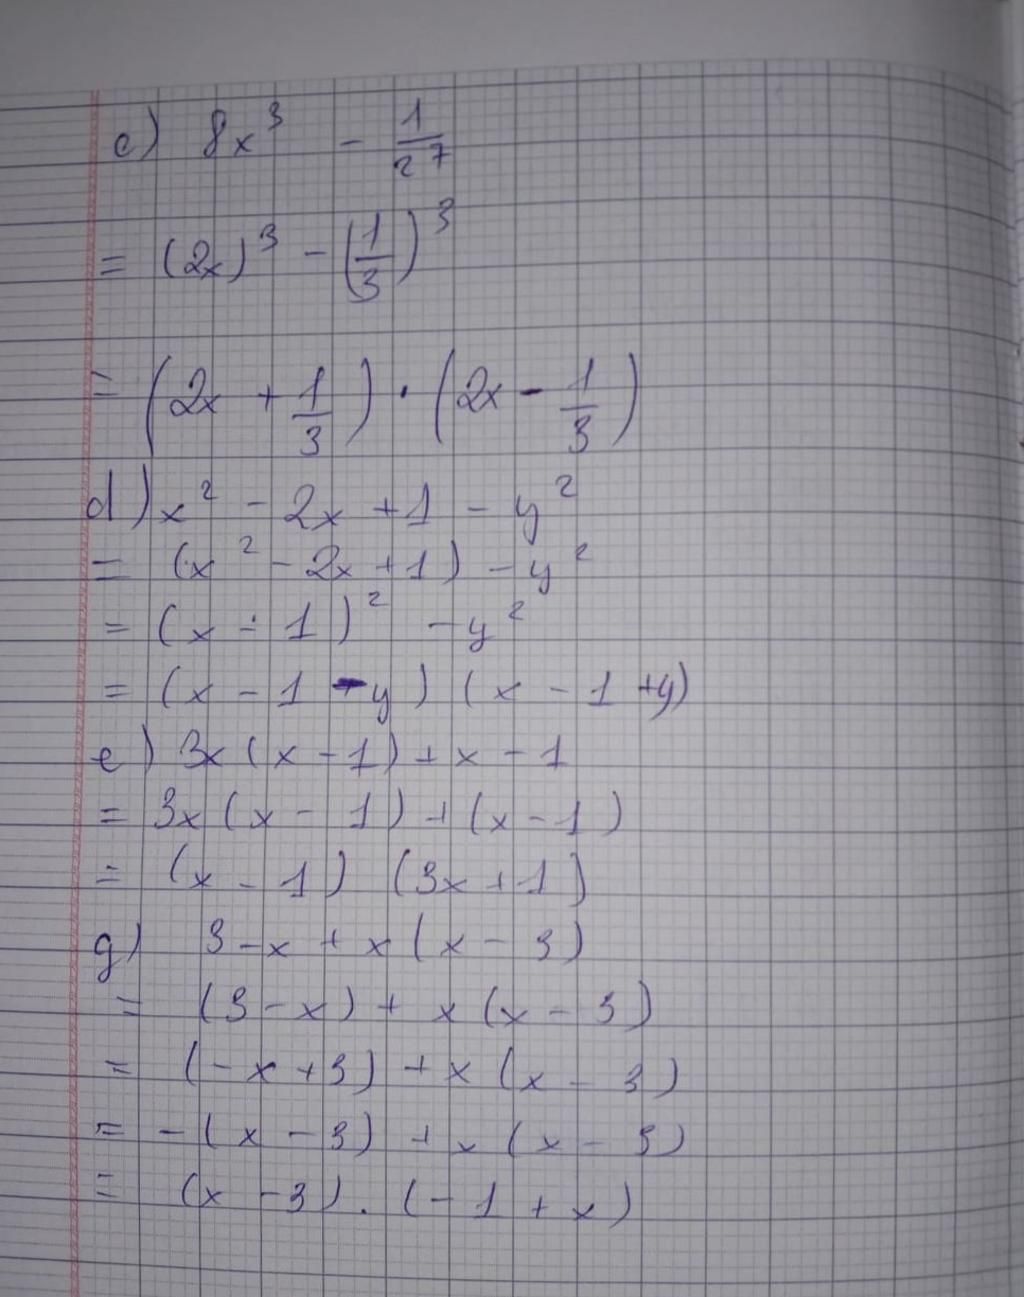 c) 8x³ - 1/27
= (2x)³ - (1/3)³
= (2x + 1/3) · (2x - 1/3)
d) x² - 2x + 1 - y²
= (x² - 2x + 1) - y²
= (x - 1)² - y²
= (x - 1 - y) (x - 1 + y)
e) 3x (x - 1) + x - 1
= 3x (x - 1) + (x - 1)
= (x - 1) (3x + 1)
g) 3 - x + x (x - 3)
= (3 - x) + x (x - 3)
= (-x + 3) + x (x - 3)
= - (x - 3) + x (x - 3)
= (x - 3) . (-1 + x)